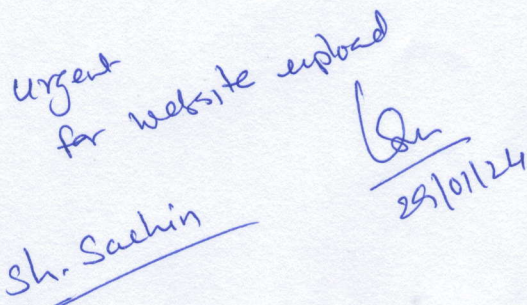 Urgent
for website upload
29/01/24
Sh. Sachin